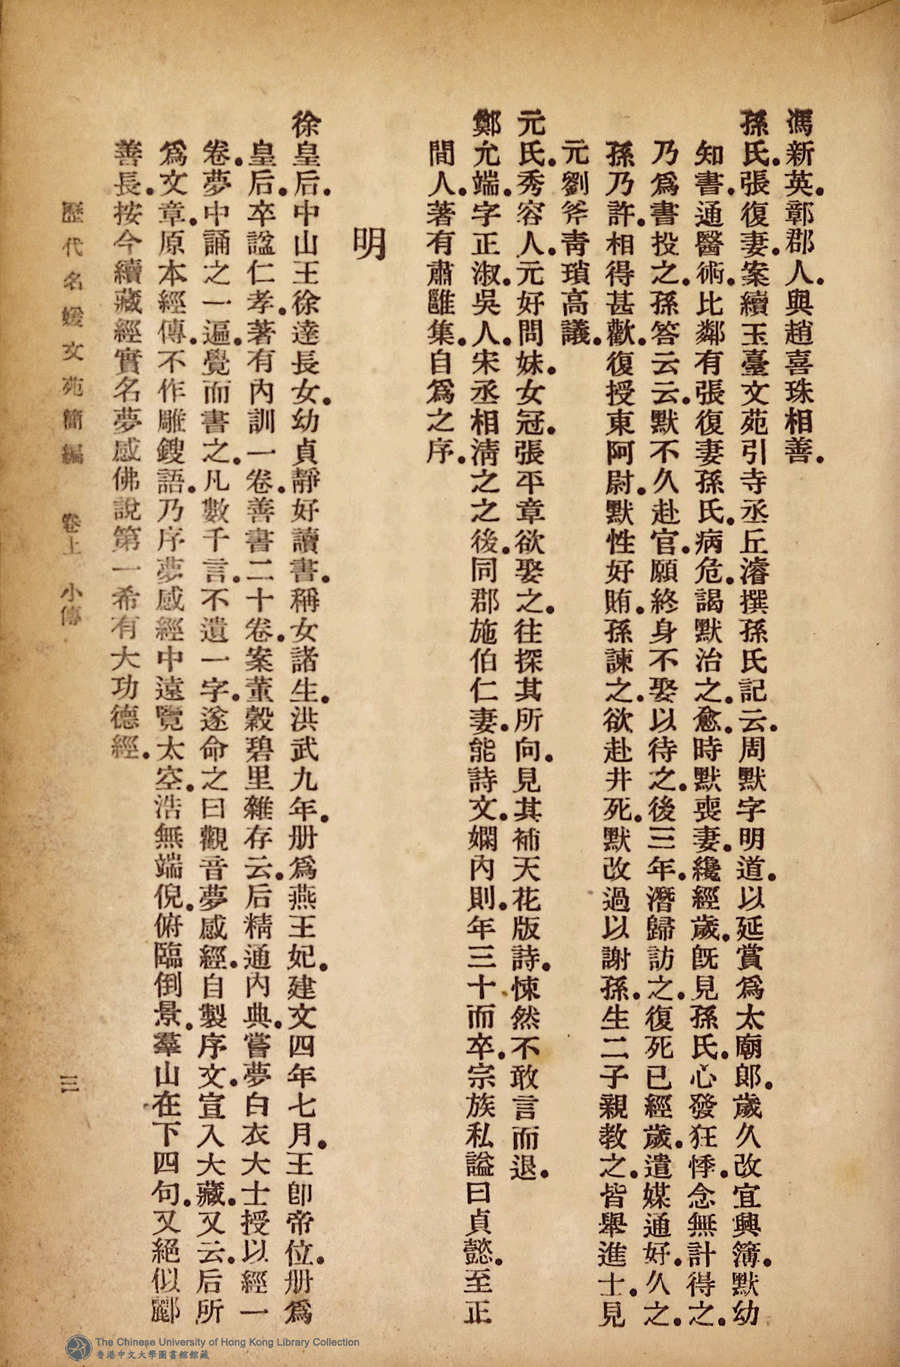 馮新英。鄣郡人。與趙喜珠相善。
孫氏。張復妻。案續玉臺文苑引寺丞丘濬撰孫氏記云。周默字明道。以延賞爲太廟郎。歲久改宜興簿。默幼
知書。通醫術。比鄰有張復妻孫氏。病危。謁默治之。愈。時默喪妻。纔經歲。旣見孫氏。心發狂悸。念無計得之。
乃爲書投之。孫答云云。默不久赴官。願終身不娶以待之。後三年。潛歸訪之。復死已經歲。遣媒通好。久之。
孫乃許。相得甚歡。復授東阿尉。默性好賄。孫諫之。欲赴井死。默改過以謝孫。生二子親教之。皆舉進士。見
元劉斧靑瑣高議。
元氏。秀容人。元好問妹。女冠。張平章欲娶之。往探其所向。見其補天花版詩。悚然不敢言而退。
鄭允端。字正淑。吳人。宋丞相淸之之後。同郡施伯仁妻。能詩文。嫻內則。年三十而卒。宗族私謚曰貞懿。至正
間人。著有肅雝集。自爲之序。
明
徐皇后。中山王徐逹長女。幼貞靜好讀書。稱女諸生。洪武九年。册爲燕王妃。建文四年七月。王卽帝位。册爲
皇后。卒謚仁孝。著有內訓一卷。善書二十卷。案董穀碧里雜存云。后精通內典。嘗夢白衣大士授以經一
卷。夢中誦之一遍。覺而書之。凡數千言。不遺一字。遂命之曰觀音夢感經。自製序文。宣入大藏。又云。后所
爲文章。原本經傳。不作雕鎪語。乃序夢感經中遠覽太空。浩無端倪。俯臨倒景。羣山在下四句。又絕似酈
善長。按今續藏經實名夢感佛說第一希有大功德經。
歷代名媛文苑簡編 卷上 小傳 三
The Chinese University of Hong Kong Library Collection
香港中文大學圖書館館藏